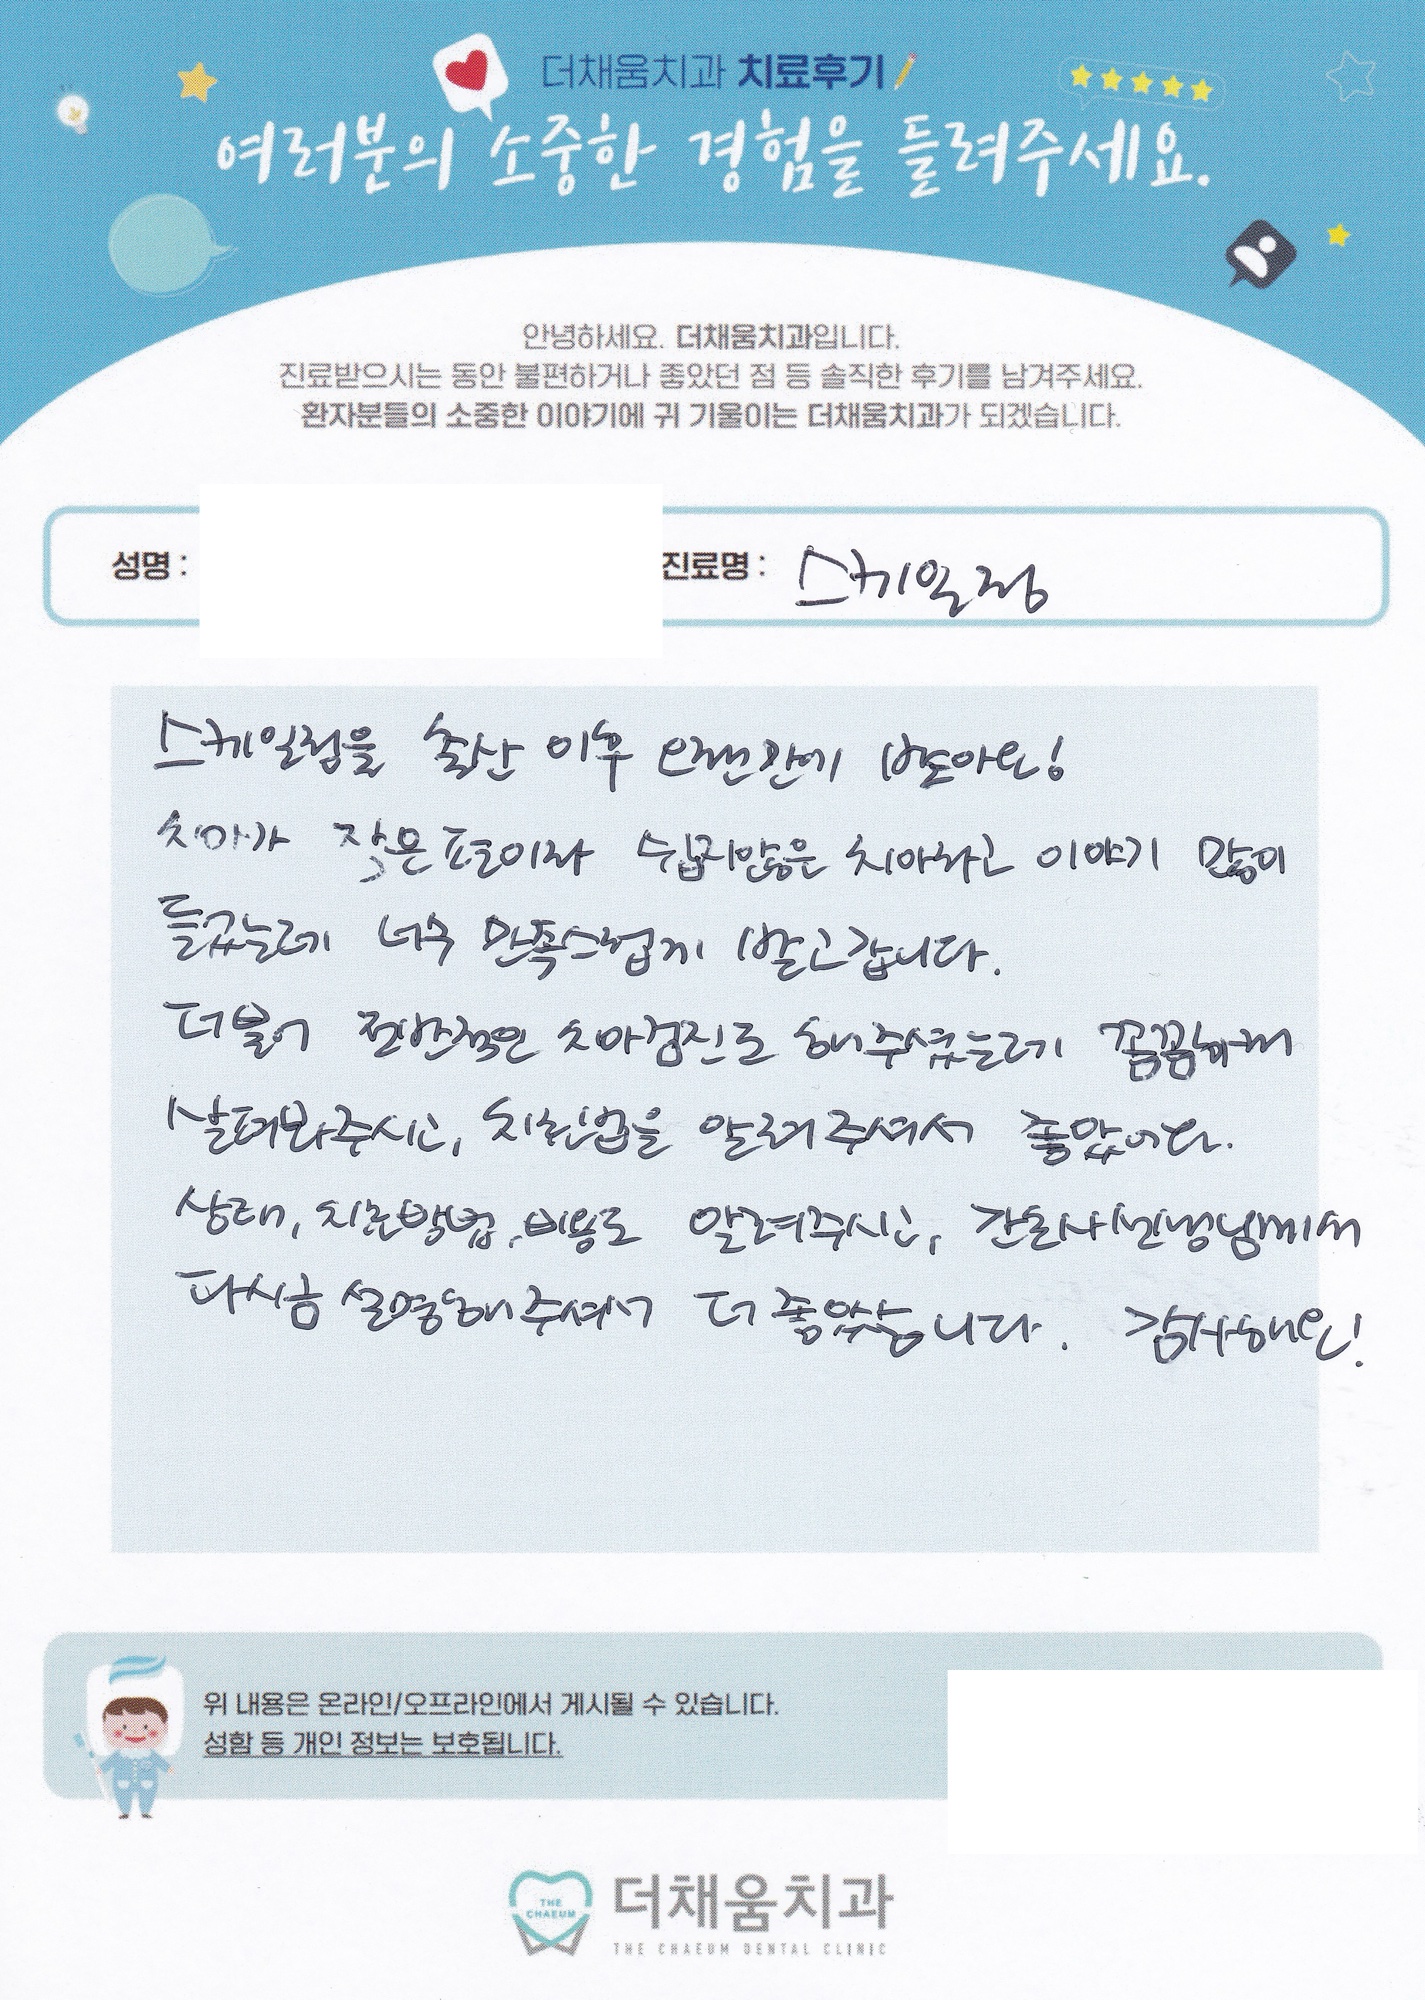 더채움치과 치료후기
여러분의 소중한 경험을 들려주세요.
안녕하세요. 더채움치과입니다.
진료받으시는 동안 불편하거나 좋았던 점 등 솔직한 후기를 남겨주세요.
환자분들의 소중한 이야기에 귀 기울이는 더채움치과가 되겠습니다.
성명 : 진료명 : 스케일링
스케일링을 출산 이후 오랜만에 받았아요!
치아가 작은편이라 쉽지않은 치아라고 이야기 많이
들었는데 너무 만족스럽게 받고갑니다.
더불어 전반적인 치아검진도 해주셨는데 꼼꼼하게
살펴봐주시고, 치료법을 알려주셔서 좋았어요.
상태, 치료방법, 비용도 알려주시고, 간호사선생님께서
다시금 설명해주셔서 더 좋았습니다. 감사해요!
위 내용은 온라인/오프라인에서 게시될 수 있습니다.
성함 등 개인 정보는 보호됩니다.
THE
CHAEUM
더채움치과
THE CHAEUM DENTAL CLINIC